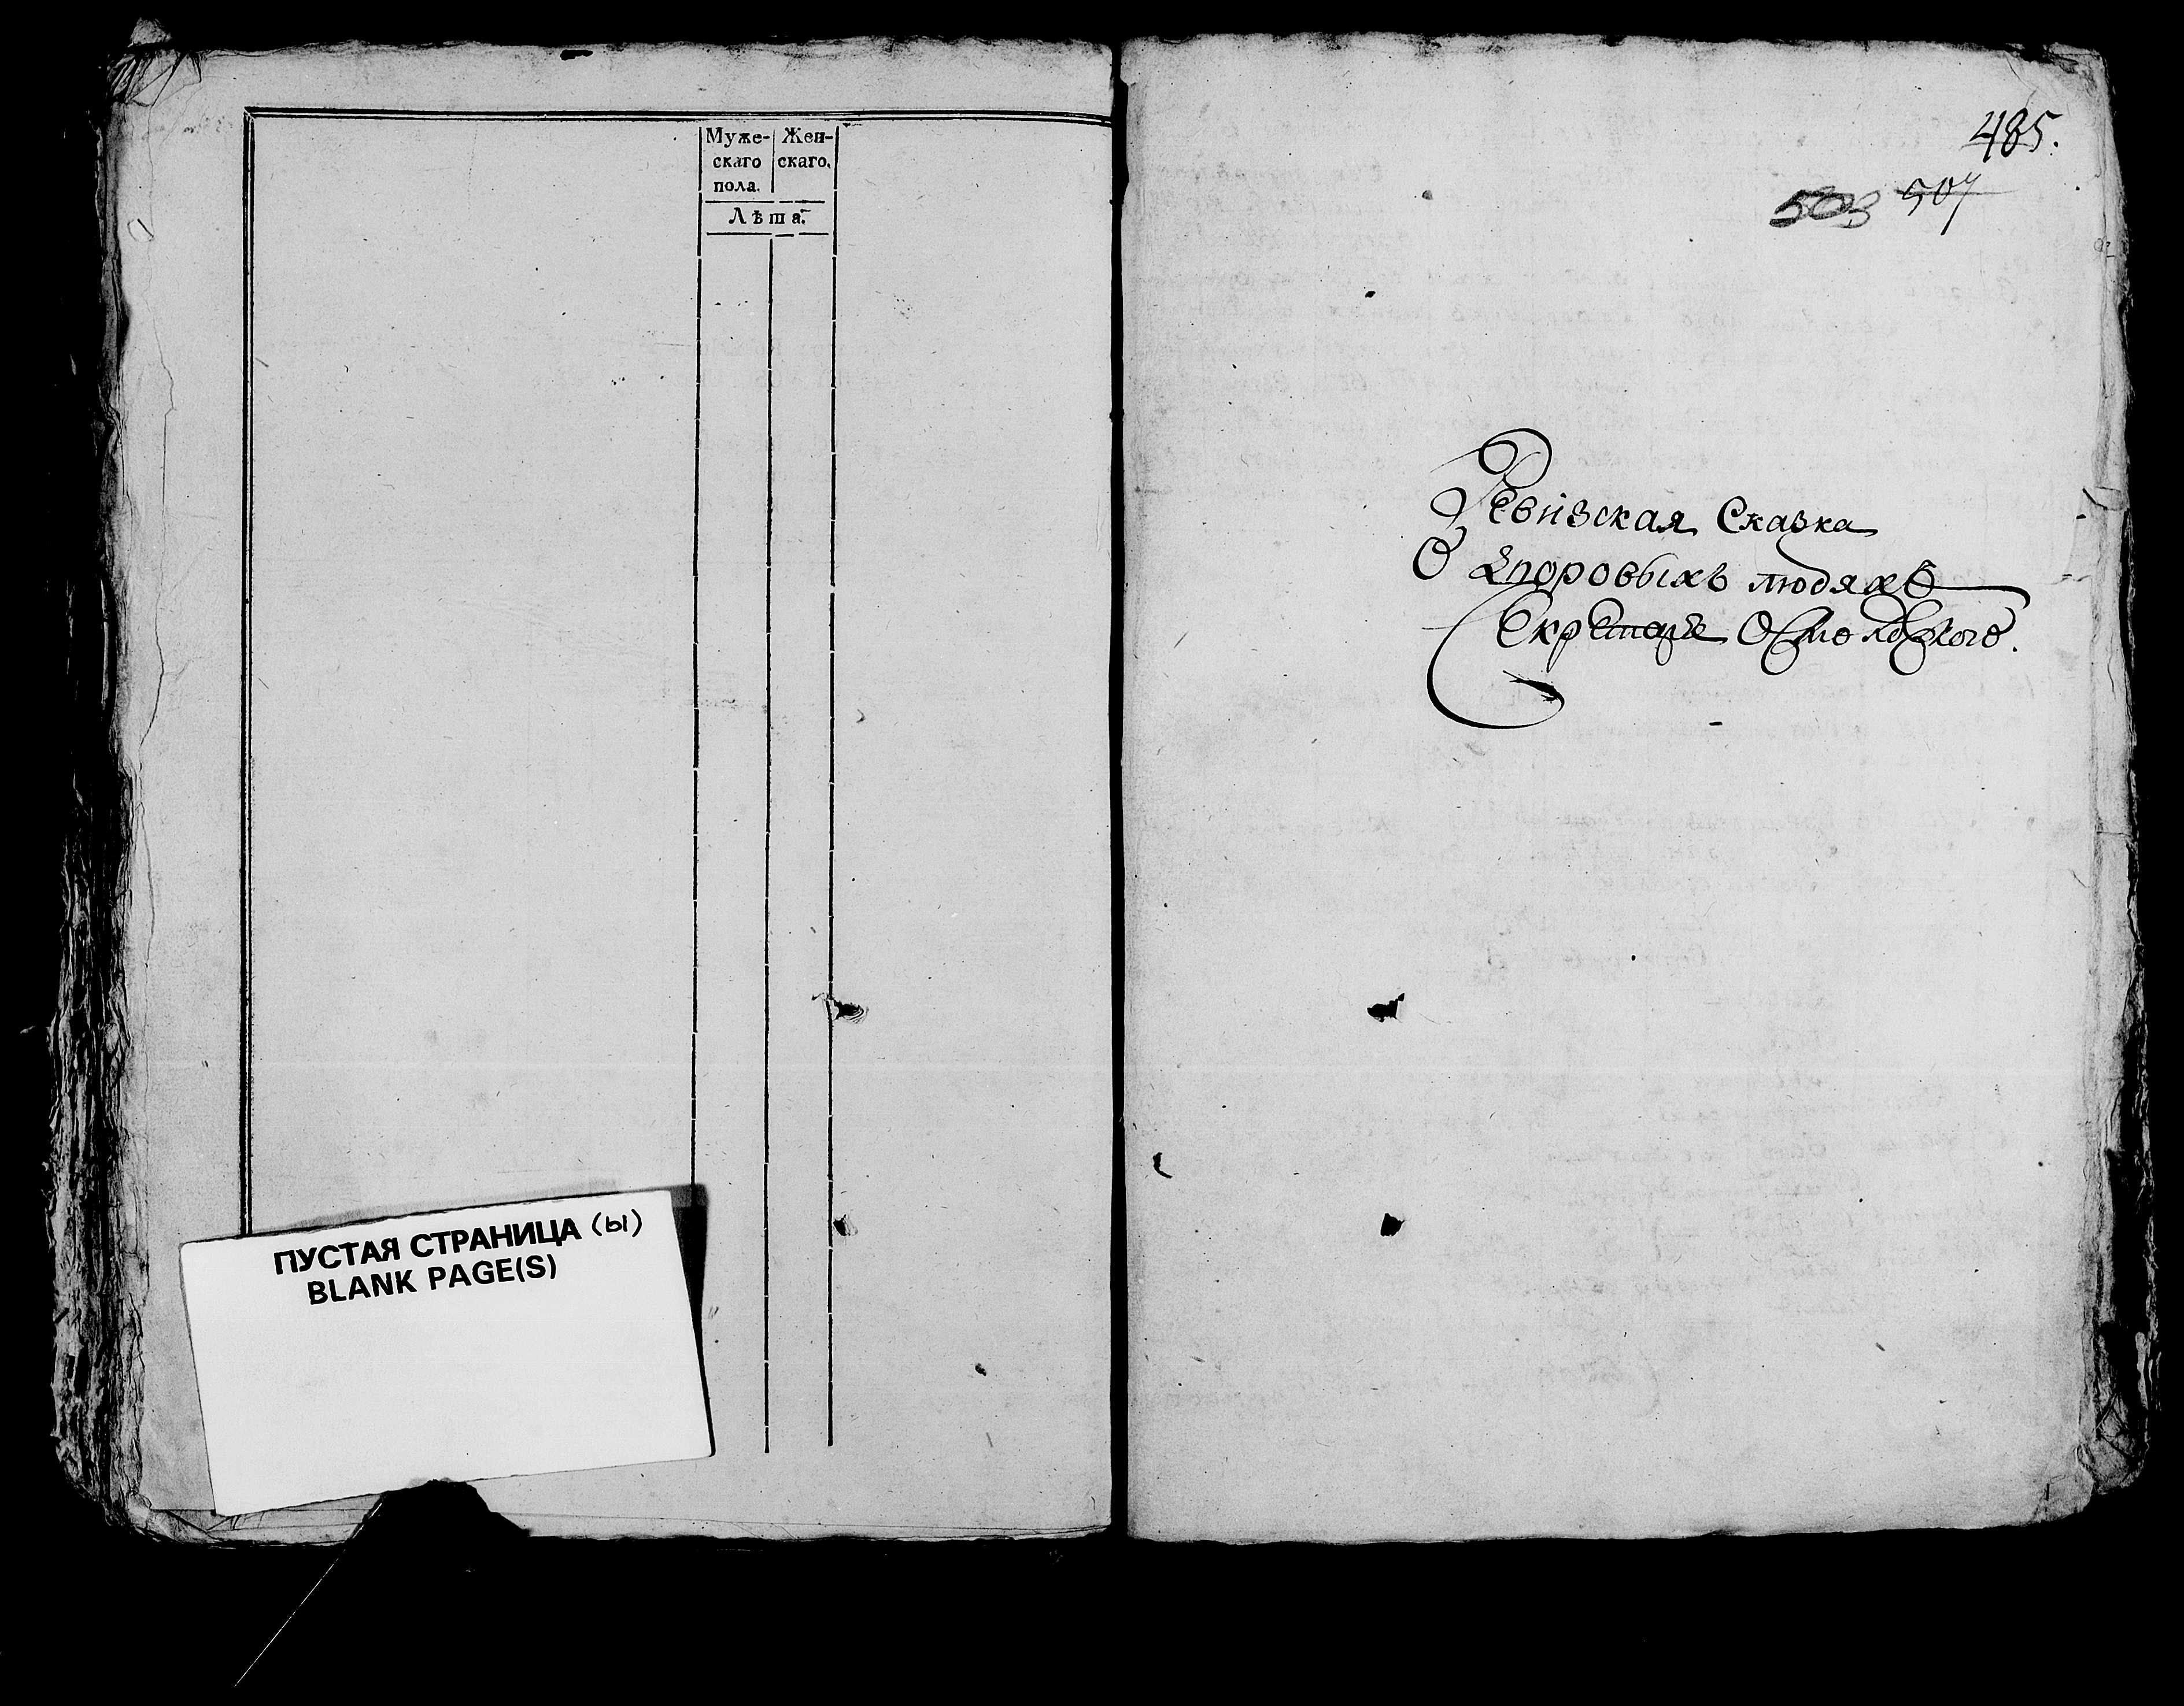 Муже- Жен-
скаго скаго.
пола.
Лѣта.
ПУСТАЯ СТРАНИЦА (ы)
BLANK PAGE(S)
485.
503 507
Ревизская Сказка
О дворовыхъ людяхъ
Секретаря